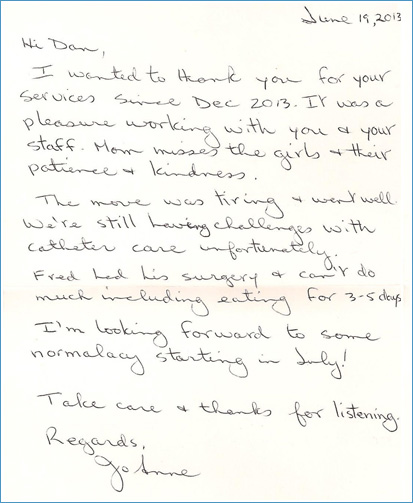 June 19, 2013
Hi Dan,
I wanted to thank you for your
services since Dec 2013. It was a
pleasure working with you & your
staff. Mom misses the girls & their
patience & kindness.
The move was tiring & went well.
We're still having challenges with
catheter care unfortunately.
Fred had his surgery & can't do
much including eating for 3-5 days
I'm looking forward to some
normalacy starting in July!
Take care & thanks for listening.
Regards,
Jo Anne